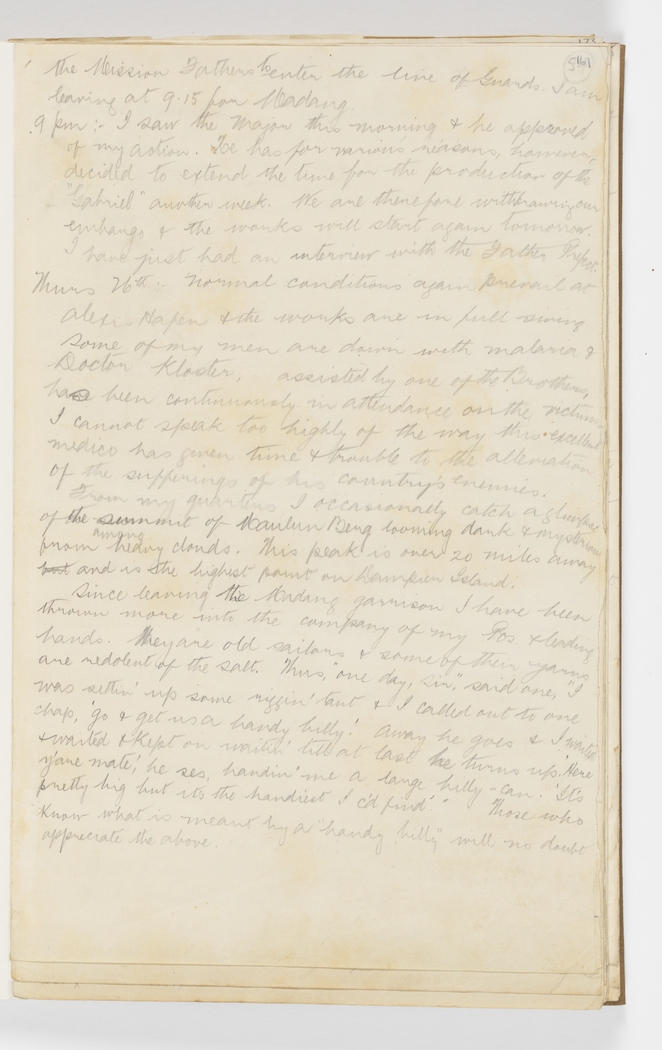 561
the Mission Fathers to enter the line of Guards. I am
leaving at 9.15 for Madang.
9 pm :- I saw the Major this morning & he approved
of my action. He has for various reasons, however,
decided to extend the time for the production of the
"Gabriel" another week. We are therefore withdrawing our
embargo & the works will start again tomorrow.
I have just had an interview with the Father Prefect.
Thurs 26th :- Normal conditions again prevail at
Alexis Hafen & the works are in full swing
Some of my men are down with malaria &
Doctor Kloster, assisted by one of the Brothers,
has been continuously in attendance on the victims
I cannot speak too highly of the way this excellent
medico has given time & trouble to the alleviation
of the sufferings of his country's enemies.
From my quarters I occasionally catch a glimpse
of the summit of Berg looming dark & mysterious
among
from heavy clouds. This peak is over 20 miles away
but and is the highest point on Dampier Island.
Since leaving the Madang garrison I have been
thrown more into the company of my POs & leading
hands. They are old sailors & some of their yarns
are redolent of the salt. Thus, "one day, sir," said one, "I
was settin' up some riggin' taut & I called out to one
chap, 'go & get us a handy billy'. Away he goes & I waited
& waited & kept on waitin' till at last he turns up. 'Here
y'are mate', he ses, handin' me a large billy-can. 'It's
pretty big but its the handiest I c'd find'." Those who
know what is meant by a "handy billy" will no doubt
appreciate the above.